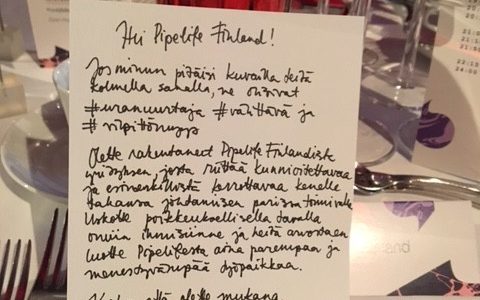 Hei Pipelife Finland!
Jos minun pitäisi kuvailla teitä
kolmella sanalla, ne olisivat
#uranuurtaja #välittävä ja
#vilpittömyys
Olette rakentaneet Pipelife Finlandista
yrityksen, josta riittää kunnioitettavaa
ja esimerkillistä kerrottavaa kenelle
tahansa johtamisen parissa toimivalle.
Uskotte poikkeuksellisella tavalla
omiin ihmisiinne ja heitä arvostaen
luotte Pipelifesta aina parempaa ja
menestyvämpää työpaikkaa.
että olette mukana